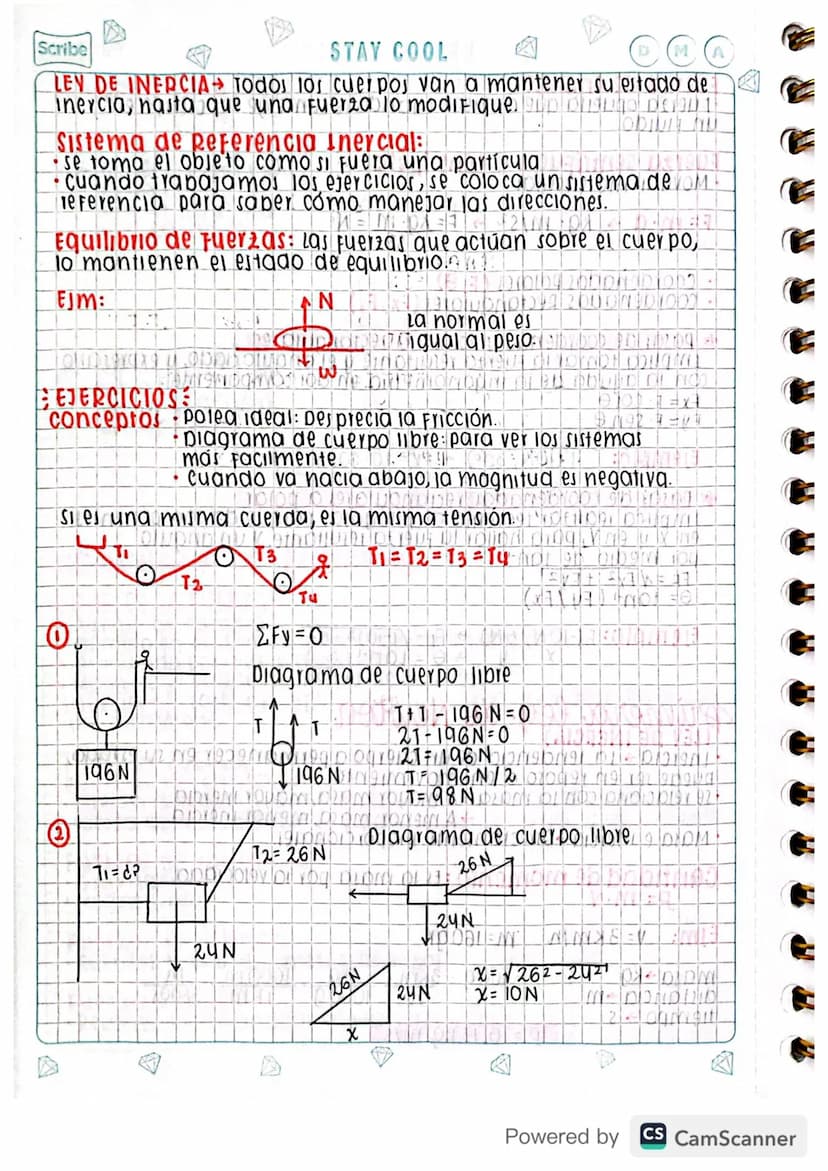 Scribe
STAY COOL
D M A
LEY DE INERCIA→ Todos los cuerpos van a mantener su estado de
inercia, hasta que una fuerza lo modifique.
Sistema de Referencia Inercial:
• Se toma el objeto como si fuera una partícula
• Cuando trabajamos los ejercicios, se coloca un sistema de
referencia para saber cómo manejar las direcciones.
Equilibrio de Fuerzas: Las fuerzas que actúan sobre el cuerpo,
lo mantienen el estado de equilibrio.
Ejm:
N
La normal es
igual al peso.
W
EJERCICIOS
Conceptos • Polea ideal: Desprecia la fricción.
• Diagrama de cuerpo libre: para ver los sistemas
más facilmente.
• Cuando va hacia abajo, la magnitud es negativa.
Si es una misma cuerda, es la misma tensión.
T1 T2 T3 T4
T1 = T2 = T3 = T4
1
ΣFy = 0
Diagrama de cuerpo libre
196 N
T T
196 N
T+T - 196 N = 0
2T - 196 N = 0
2T = 196 N
T = 196 N/2
T = 98 N
2
T1 = ¿?
T2 = 26 N
24 N
Diagrama de cuerpo libre
26 N
24 N
26 N
24 N
x
x = √26² - 24²
x = 10 N
Powered by CS CamScanner